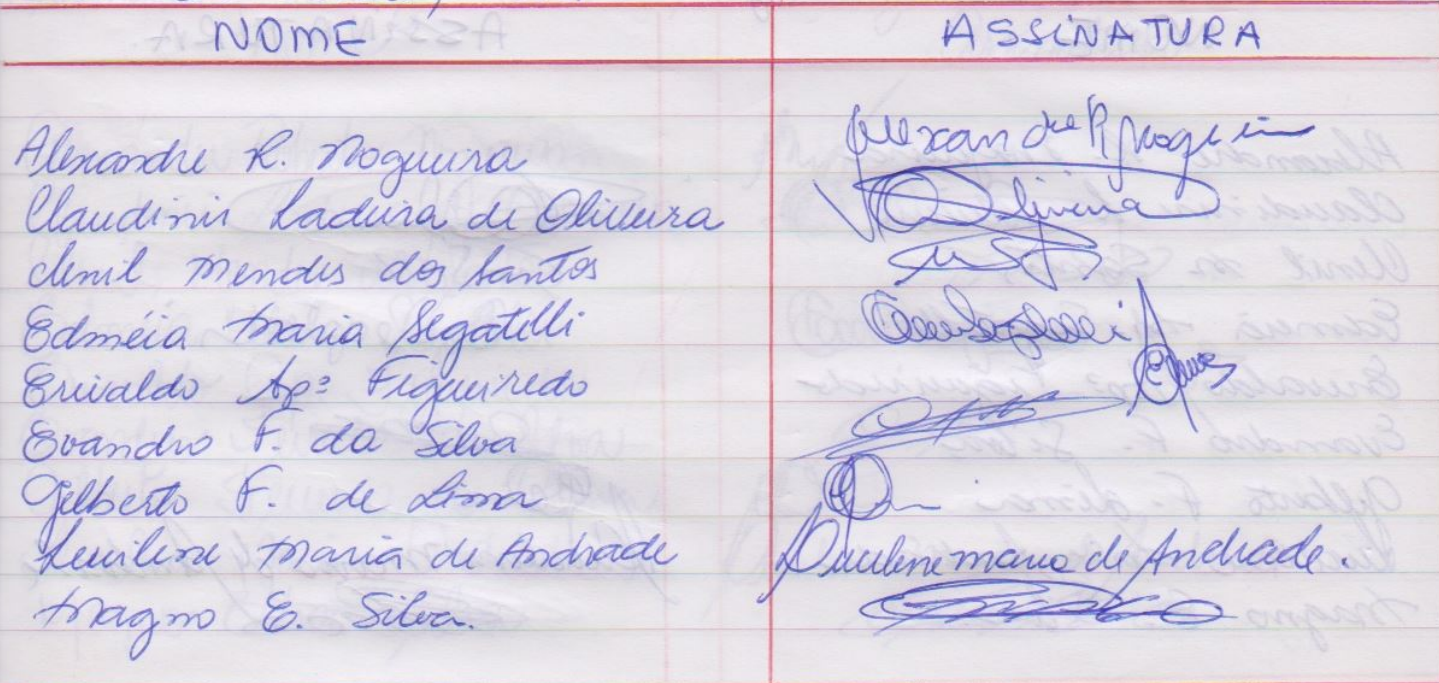 NOME ASSINATURA
Alexandre R. Nogueira Alexandre R Nogueira
Claudinir Ladeira de Oliveira Oliveira
Clenil Mendes dos Santos
Edméia Maria Segatelli
Erivaldo Apº Figueiredo
Evandro F. da Silva
Gilberto F. de Lima
Lucilene Maria de Andrade Lucilene maria de Andrade.
Magno E. Silva.